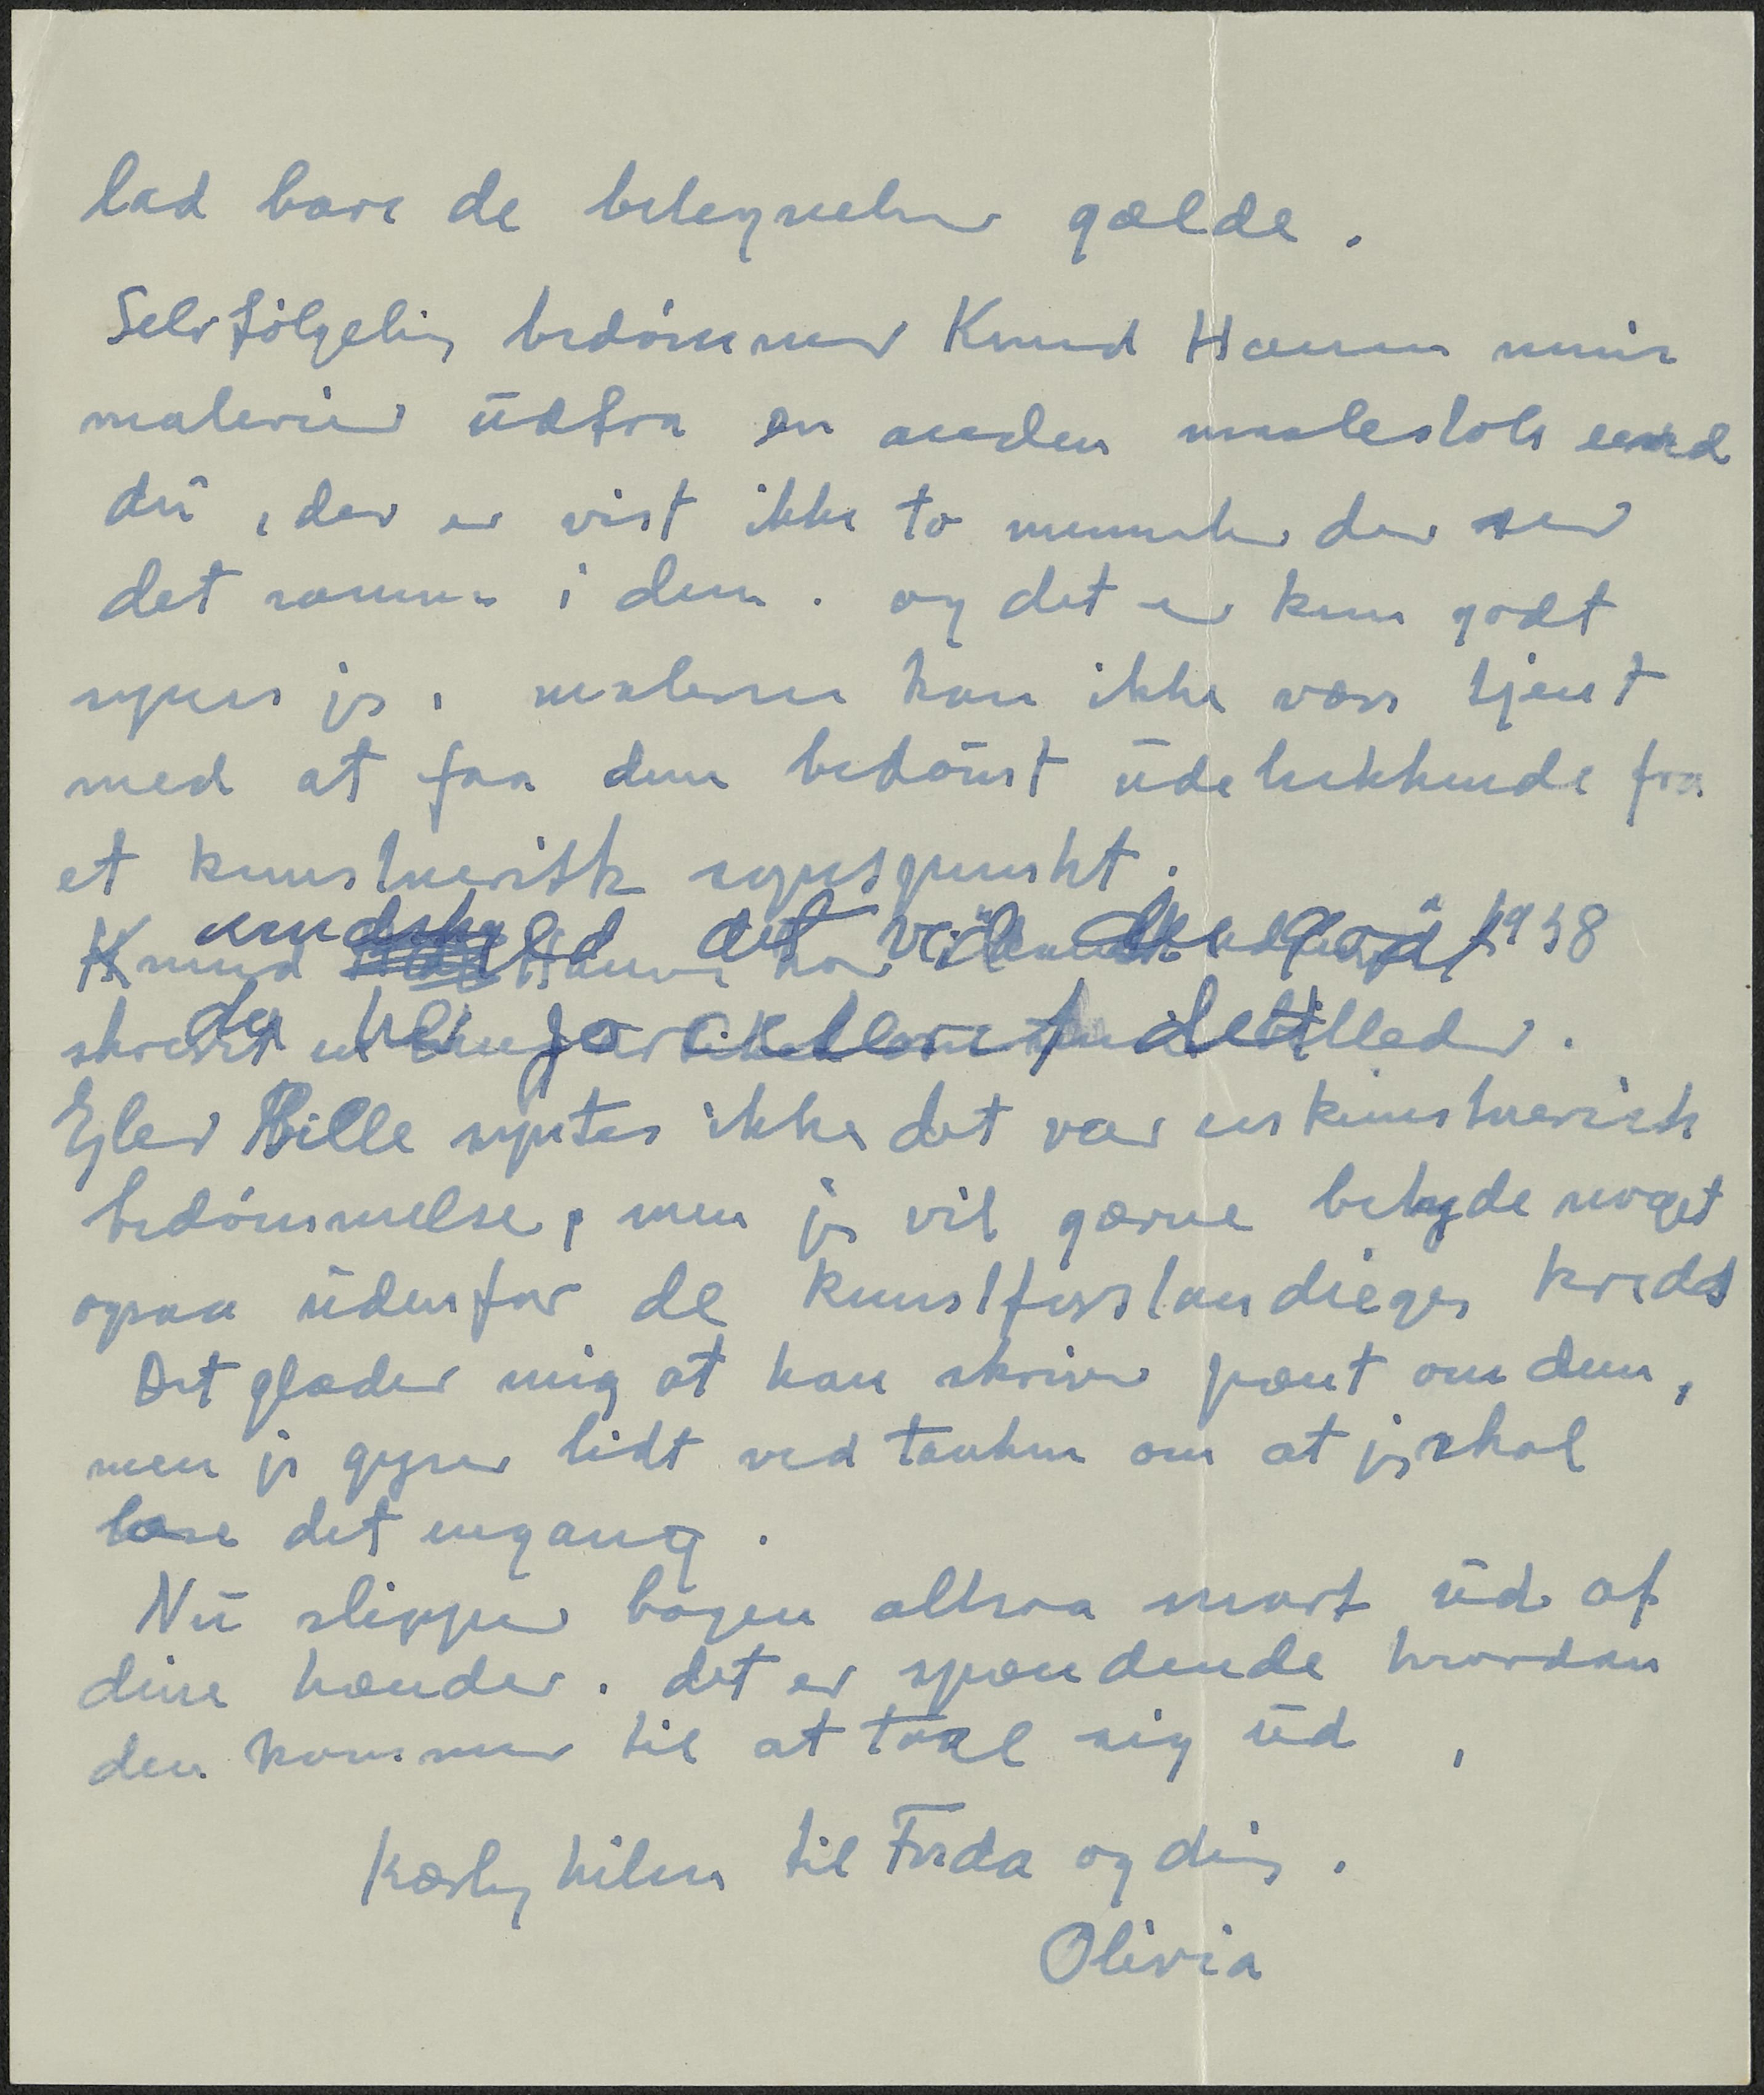 lad bare de betegnelser gælde.
Selvfølgelig bedømmer Knud Hansen mine
malerier üdfra en anden maalestok end
dü, der er vist ikke to mennesker der ser
det samme i dem. og det er kun godt
synes jeg, maleren kan ikke være tjent
med at faa dem bedømt üdelukkende fra
et kunstnerisk synspunkt.
Knud har 1938
skrevet billeder.
Ejler Bille syntes ikke det var en kunstnerisk
bedømmelse, men jeg vil gærne betyde noget
ogsaa üdenfor de kunstforstandiges kreds
Det glæder mig at han skriver pænt om dem,
men jeg gyser lidt ved tanken om at jeg skal
læse det engang.
Nü slipper bogen altsaa snart üd af
dine hænder. det er spændende hvordan
den kommer til at tage sig üd,
Kærlig hilsen til Frida og dig.
Olivia